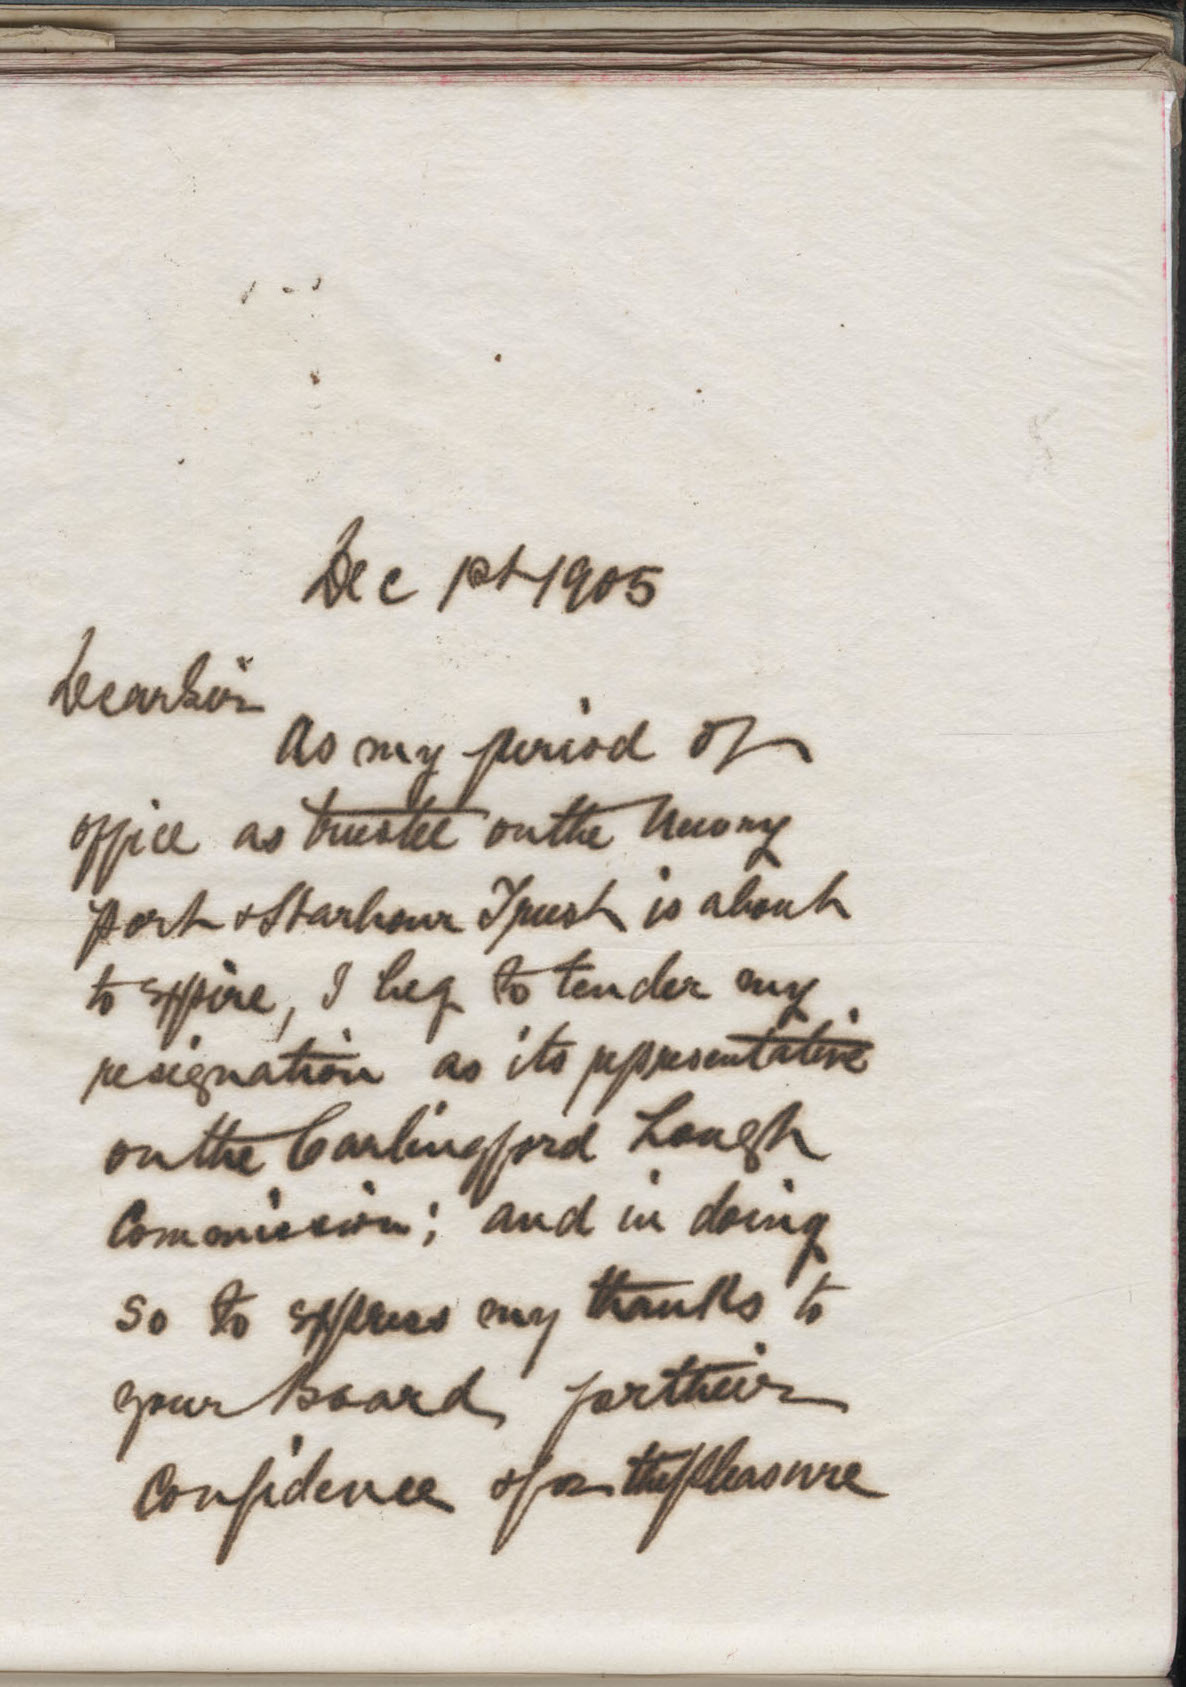 Dec 1st 1905
Dear Sir
As my period of
office as trustee on the Newry
Port & Harbour Trust is about
to expire, I beg to tender my
resignation as its representative
on the Carlingford Lough
Commission; and in doing
so to express my thanks to
your Board, for their
Confidence & for the pleasure